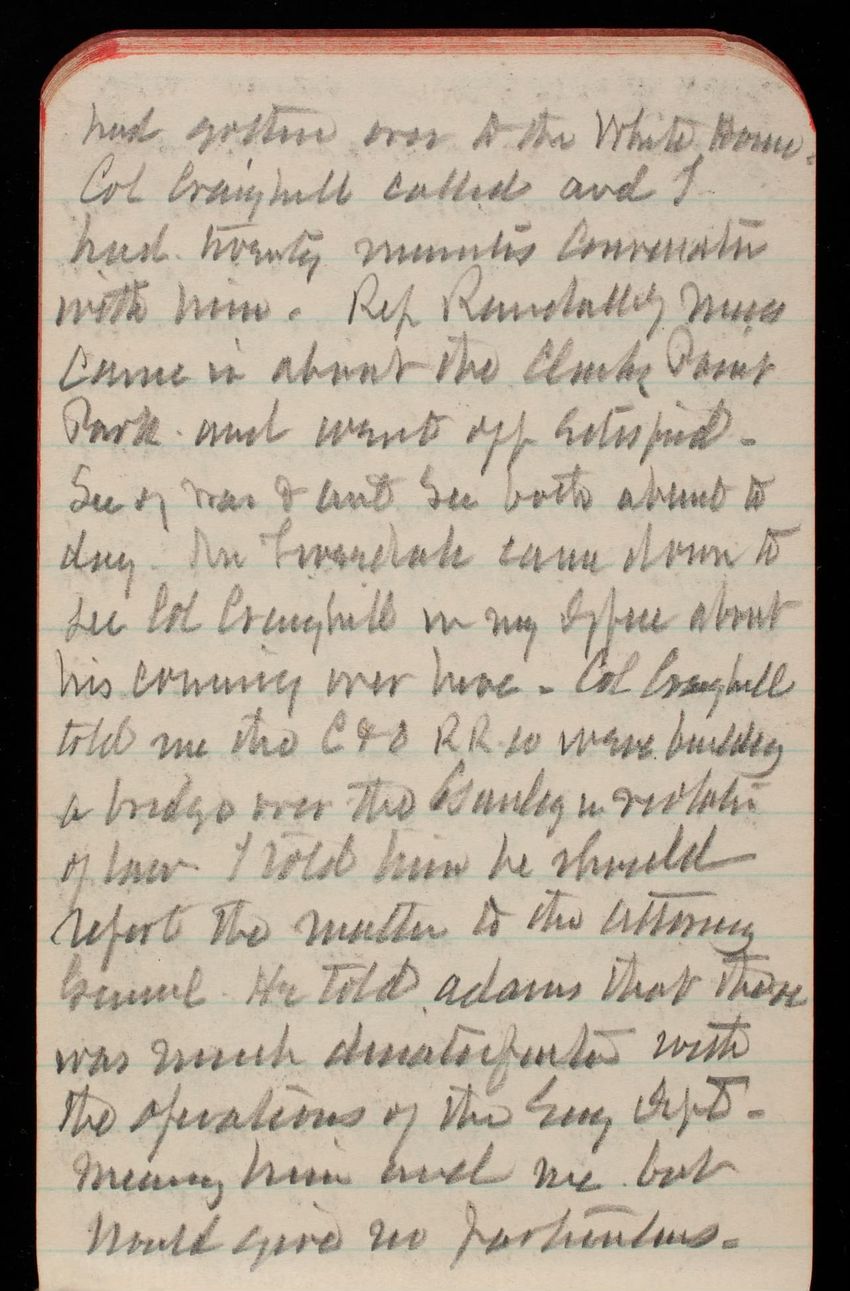 had gotten over to the White House.
Col Craighill called and I
had twenty minutes conversation
with him. Rep Randall of Mass
came in about the Clarks Point
Park and went off satisfied -
Sec of War & asst Sec both absent to
day. came down to
see Col Craighill in my office about
his coming over here - Col Craighill
told me the C & O RR Co were building
a bridge over the Gauley in violation
of law I told him he should
report the matter to the Attorney
General He told Adams that there
was much dissatisfaction with
the operations of the Eng Dept -
Meaning him and me but
would give no particulars -